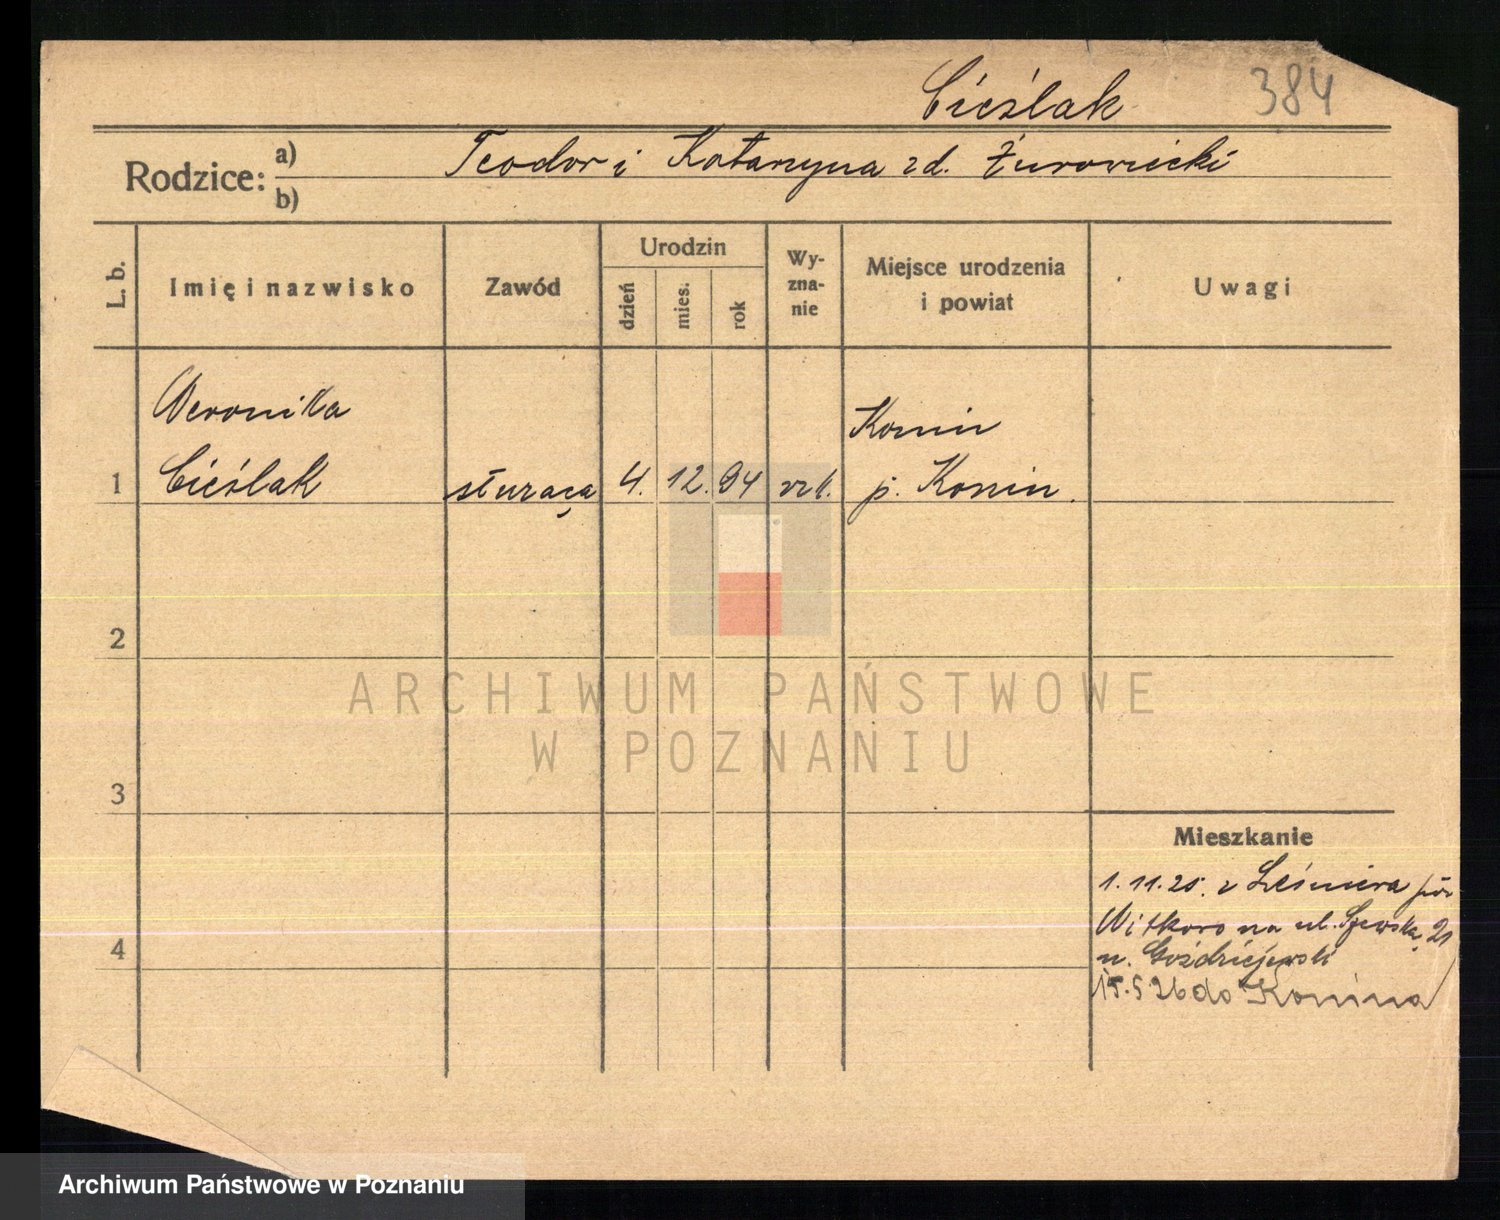 Cieślak 384
Rodzice: a) Teodor i Katarzyna zd. Żurowicki
b)
L. b. Imię i nazwisko Zawód Urodzin dzień mies. rok Wy-zna-nie Miejsce urodzenia i powiat Uwagi
Weronika Konin
1 Cieślak służąca 4. 12. 94 rzk. p. Konin.
2
ARCHIWUM PAŃSTWOWE
W POZNANIU
3
Mieszkanie
1.11.25. z
4
Witkowo na ul. Szewska 21
u. Goździejewski
15.5 26 do Konina
Archiwum Państwowe w Poznaniu